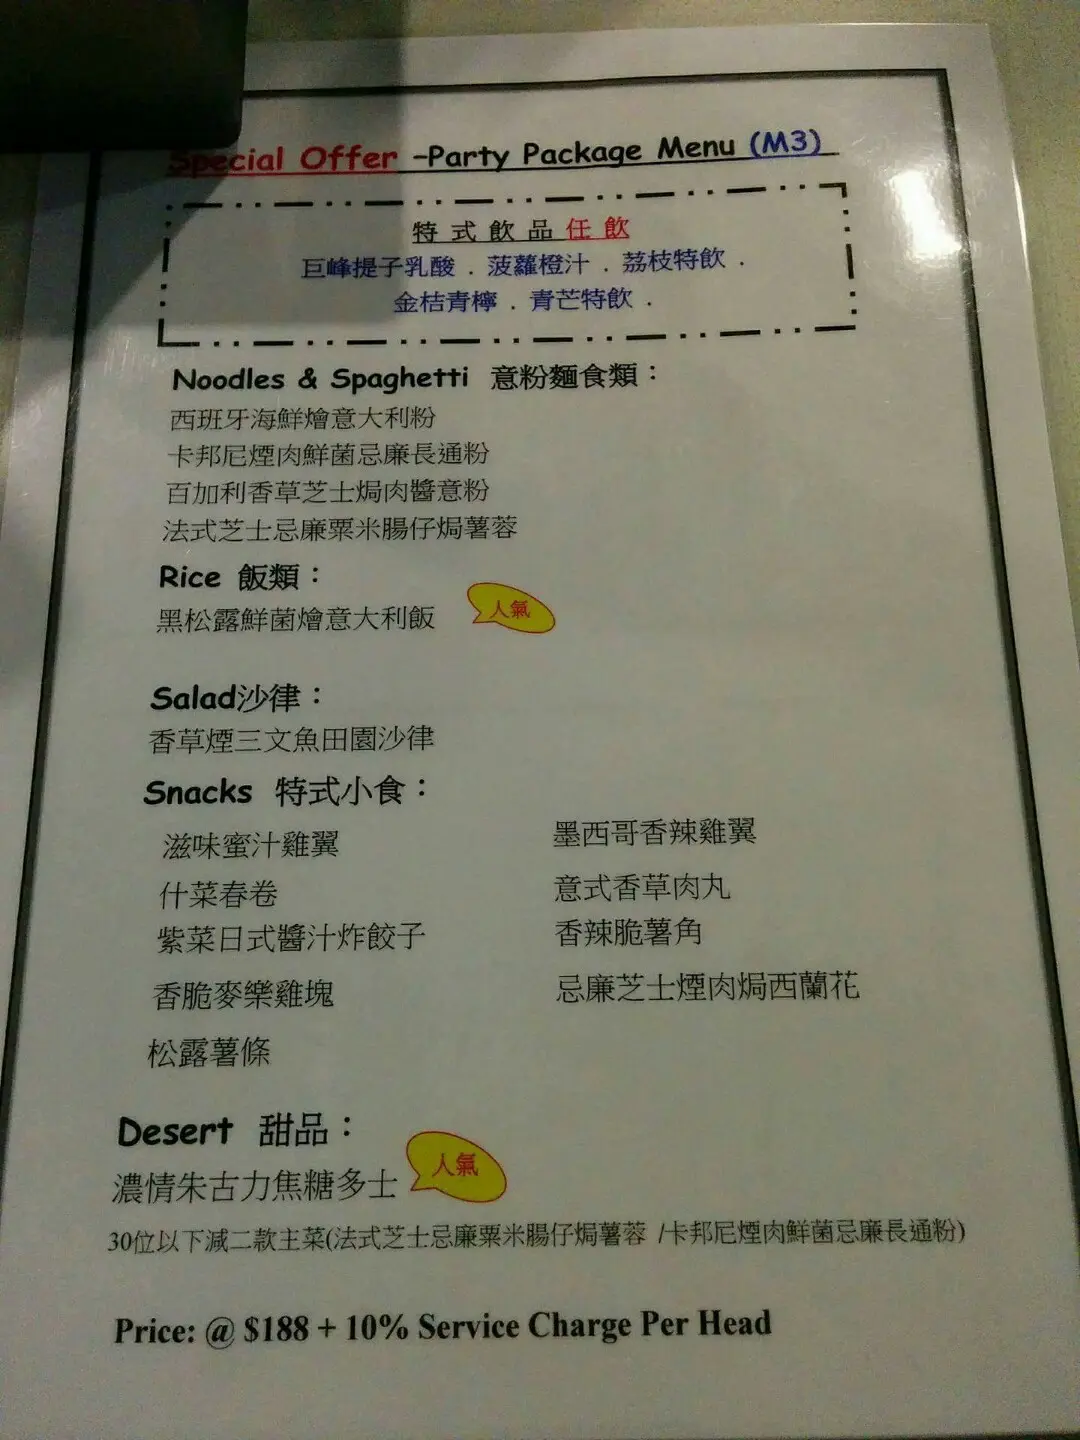 Special Offer –Party Package Menu (M3)
特式飲品任飲
巨峰提子乳酸 . 菠蘿橙汁 . 荔枝特飲 .
金桔青檸 . 青芒特飲 .
Noodles & Spaghetti 意粉麵食類：
西班牙海鮮燴意大利粉
卡邦尼煙肉鮮菌忌廉長通粉
百加利香草芝士焗肉醬意粉
法式芝士忌廉粟米腸仔焗薯蓉
Rice 飯類：
黑松露鮮菌燴意大利飯 人氣
Salad沙律：
香草煙三文魚田園沙律
Snacks 特式小食：
滋味蜜汁雞翼 墨西哥香辣雞翼
什菜春卷 意式香草肉丸
紫菜日式醬汁炸餃子 香辣脆薯角
香脆麥樂雞塊 忌廉芝士煙肉焗西蘭花
松露薯條
Desert 甜品：
濃情朱古力焦糖多士 人氣
30位以下減二款主菜(法式芝士忌廉粟米腸仔焗薯蓉 /卡邦尼煙肉鮮菌忌廉長通粉)
Price: @ $188 + 10% Service Charge Per Head